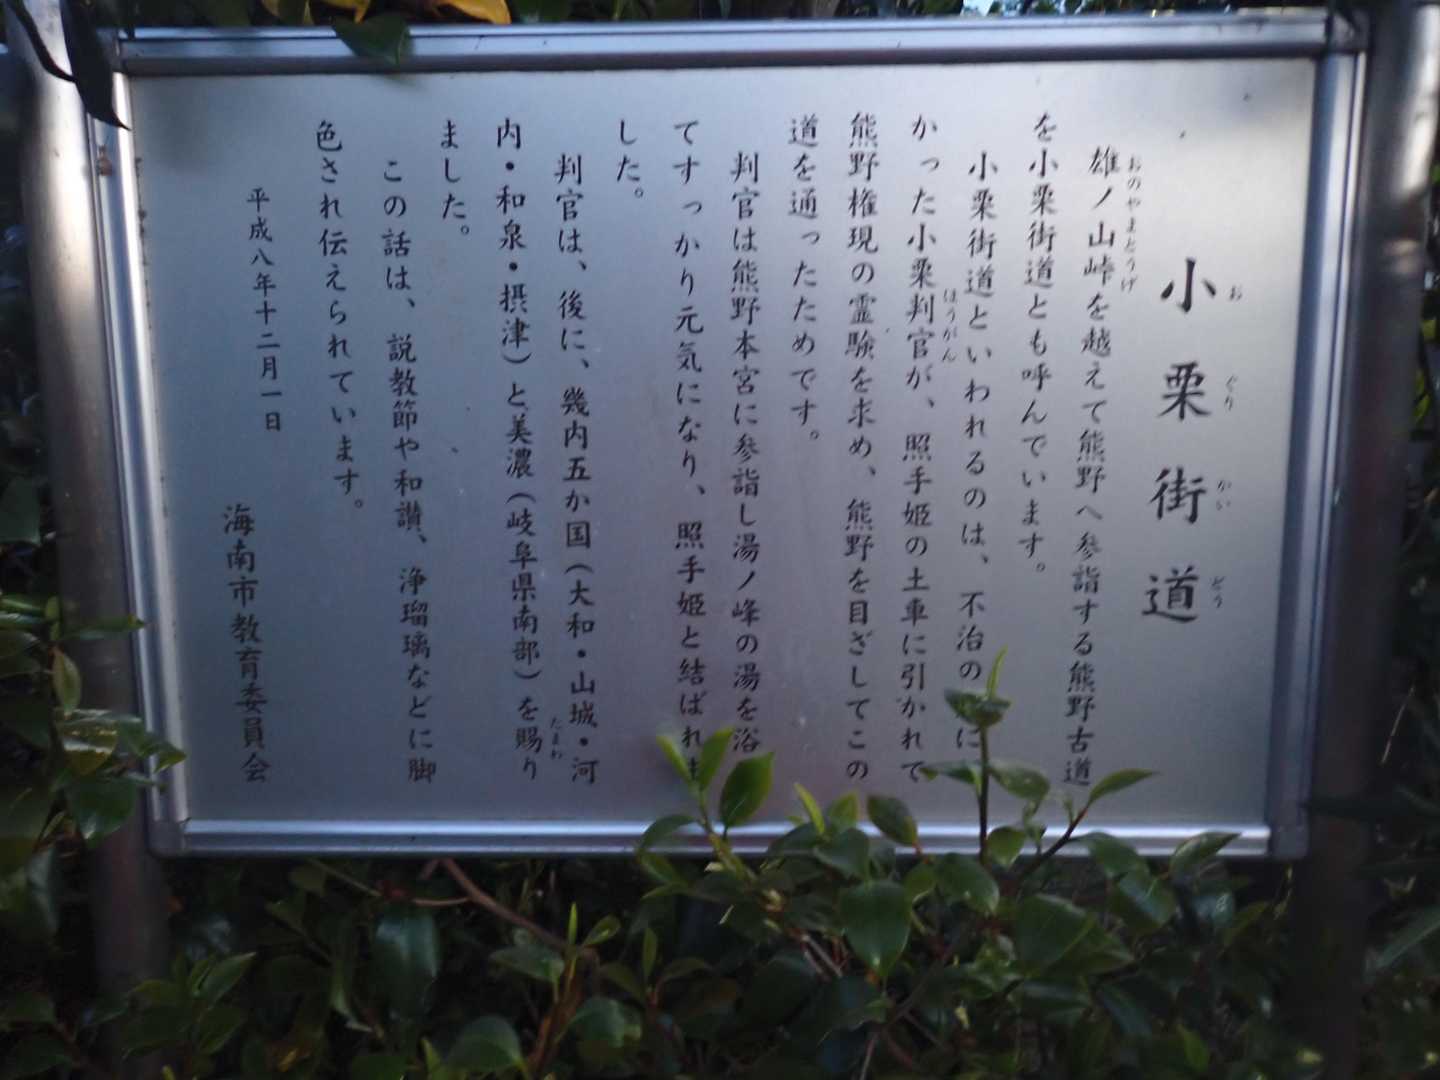 小栗街道
おぐりかいどう
おのやまとうげ
雄ノ山峠を越えて熊野へ参詣する熊野古道
を小栗街道とも呼んでいます。
小栗街道といわれるのは、不治の
に
ほうがん
かった小栗判官が、照手姫の土車に引かれて
熊野権現の霊験を求め、熊野を目ざしてこの
道を通ったためです。
判官は熊野本宮に参詣し湯ノ峰の湯を浴
てすっかり元気になり、照手姫と結ばれま
した。
判官は、後に、幾内五か国(大和・山城・河
たまわ
内・和泉・摂津)と美濃(岐阜県南部)を賜り
ました。
この話は、説教節や和讃、浄瑠璃などに脚
色され伝えられています。
平成八年十二月一日
海南市教育委員会